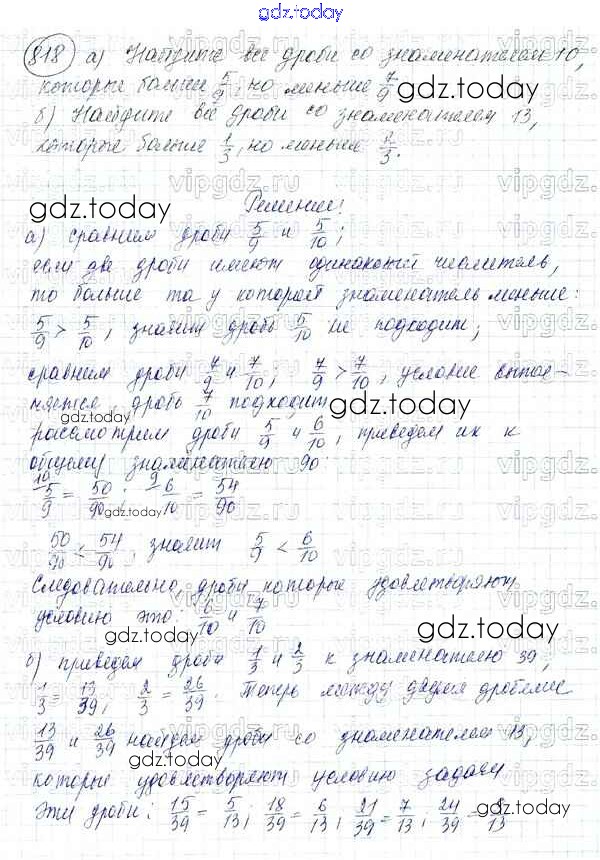 gdz.today
818 а) Найдите все дроби со знаменателем 10,
которые больше 5/9, но меньше 7/9 gdz.today
б) Найдите все дроби со знаменателем 13,
которые больше 1/3, но меньше 2/3.
vipgdz.ru vipgdz.
gdz.today Решение!
а) сравним дроби 5/9 и 5/10;
если две дроби имеют одинаковый числитель,
то больше та у которой знаменатель меньше:
5/9 > 5/10, значит дробь 5/10 не подходит;
сравним дроби 7/9 и 7/10; 7/9 > 7/10, условие выпол-
няется дробь 7/10 подходит gdz.today
рассмотрим дроби 5/9 и 6/10, приведем их к
общему знаменателю 90
5/9 = 50/90; 6/10 = 54/90
gdz.today
50/90 < 54/90, значит 5/9 < 6/10
Следовательно, дроби которые удовлетворяют
условию это: 6/10 и 7/10
gdz.today gdz.today
б) приведем дроби 1/3 и 2/3 к знаменателю 39,
1/3 = 13/39, 2/3 = 26/39. Теперь между двумя дробями
13/39 и 26/39 найдем дроби со знаменателем 13,
которые удовлетворяют условию задачи
Эти дроби: 15/39 = 5/13; 18/39 = 6/13; 21/39 = 7/13; 24/39 = 8/13
gdz.today